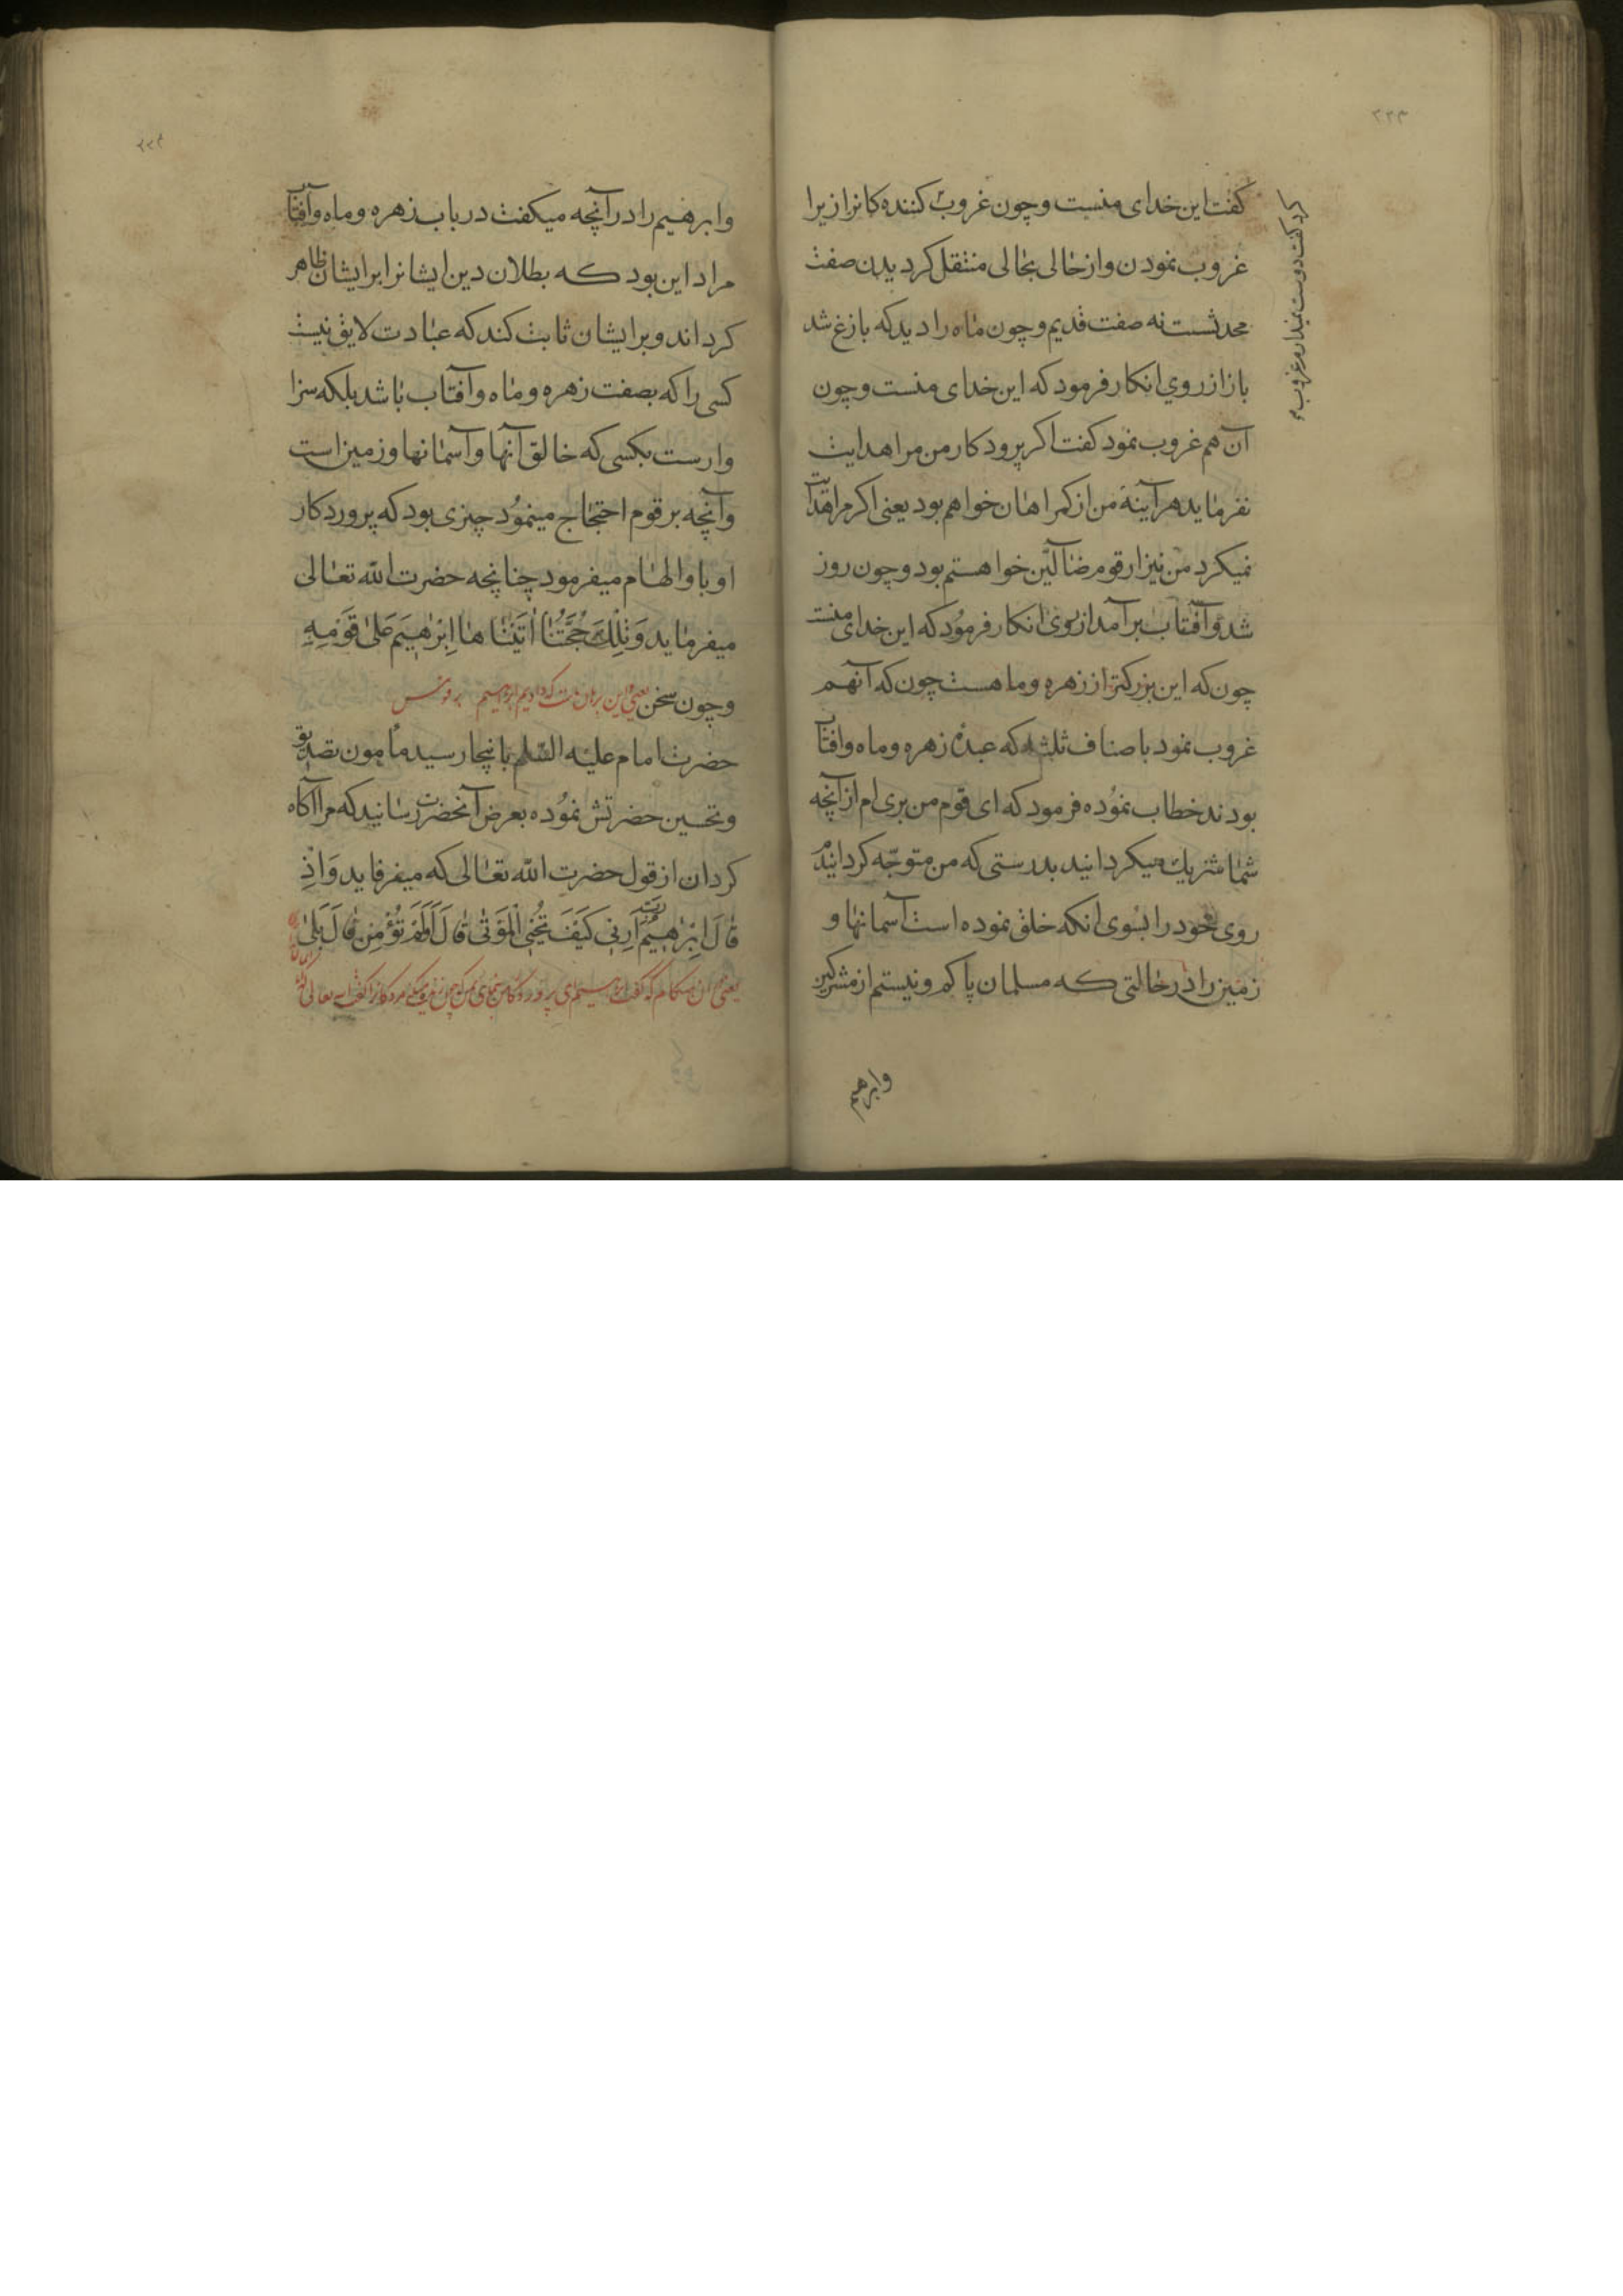 ۲۲۳
گفت این خدای منست و چون غروب کننده کانرا زیرا
کرد گفت دوست نمیدارم غروب
غروب نمودن و از حالی بحالی منتقل کردیدن صفت
محدثست نه صفت قدیم و چون ماه را دید که بازغ شد
باز از روی انکار فرمود که این خدای منست و چون
آن هم غروب نمود کفت اکر پرودکار من مرا هدایت
نفرماید هرآینه من از کمراهان خواهم بود یعنی اکر مرا هدایت
نمیکرد من نیز از قوم ضالّین خواهستم بود و چون روز
شد و آفتاب برآمد از روی انکار فرمود که این خدای منست
چون که این بزرکتر از زهره و ماهست چون که آنهم
غروب نمود باصناف ثلثه که عبدهٔ زهره و ماه و افتاب
بودند خطاب نموده فرمود که ای قوم من بری ام از آنچه
شما شریك میکردانید بدرستی که من متوجّه کردانیدم
روی خود را بسوی انکه خلق نموده است آسمانها و
زمین را در حالتی که مسلمان پاکم و نیستم از مشرکین
وابرهیم
۲۲۴
وابرهیم را در آنچه میکفت در باب زهره و ماه و آفتاب
مراد این بود که بطلان دین ایشانرا بر ایشان ظاهر
کرداند و بر ایشان ثابت کند که عبادت لایق نیست
کسی را که بصفت زهره و ماه و آفتاب باشد بلکه سزا
وارست بکسی که خالق آنها و آسمانها و زمین است
وآنچه بر قوم احتجاج مینمود چیزی بود که پروردکار
او باو الهام میفرمود چنانچه حضرت الله تعالی
میفرماید وَتِلْكَ حُجَّتُنَا اٰتَيْنَا هَا اِبْرٰهِيمَ عَلىٰ قَوْمِهِ
و چون سخن یعنی این برهان ماست که دادیم ابراهیم بر قومش
حضرت امام علیه السّلم باینجا رسید مامون تصدیق
وتحسین حضرتش نموده بعرض آنحضرت رسانید که مرا آکاه
کردان از قول حضرت الله تعالی که میفرماید وَاِذْ
قَالَ اِبْرٰهِيمُ رَبِّ اَرِنِي كَيْفَ تُحْيِي الْمَوْتٰى قَالَ اَوَلَمْ تُؤْمِنْ قَالَ بَلىٰ
یعنی آن هنکام که گفت ابراهیم ای پروردکار من بنمای بمن که چون زنده میکنی مردکانرا گفت الله تعالی